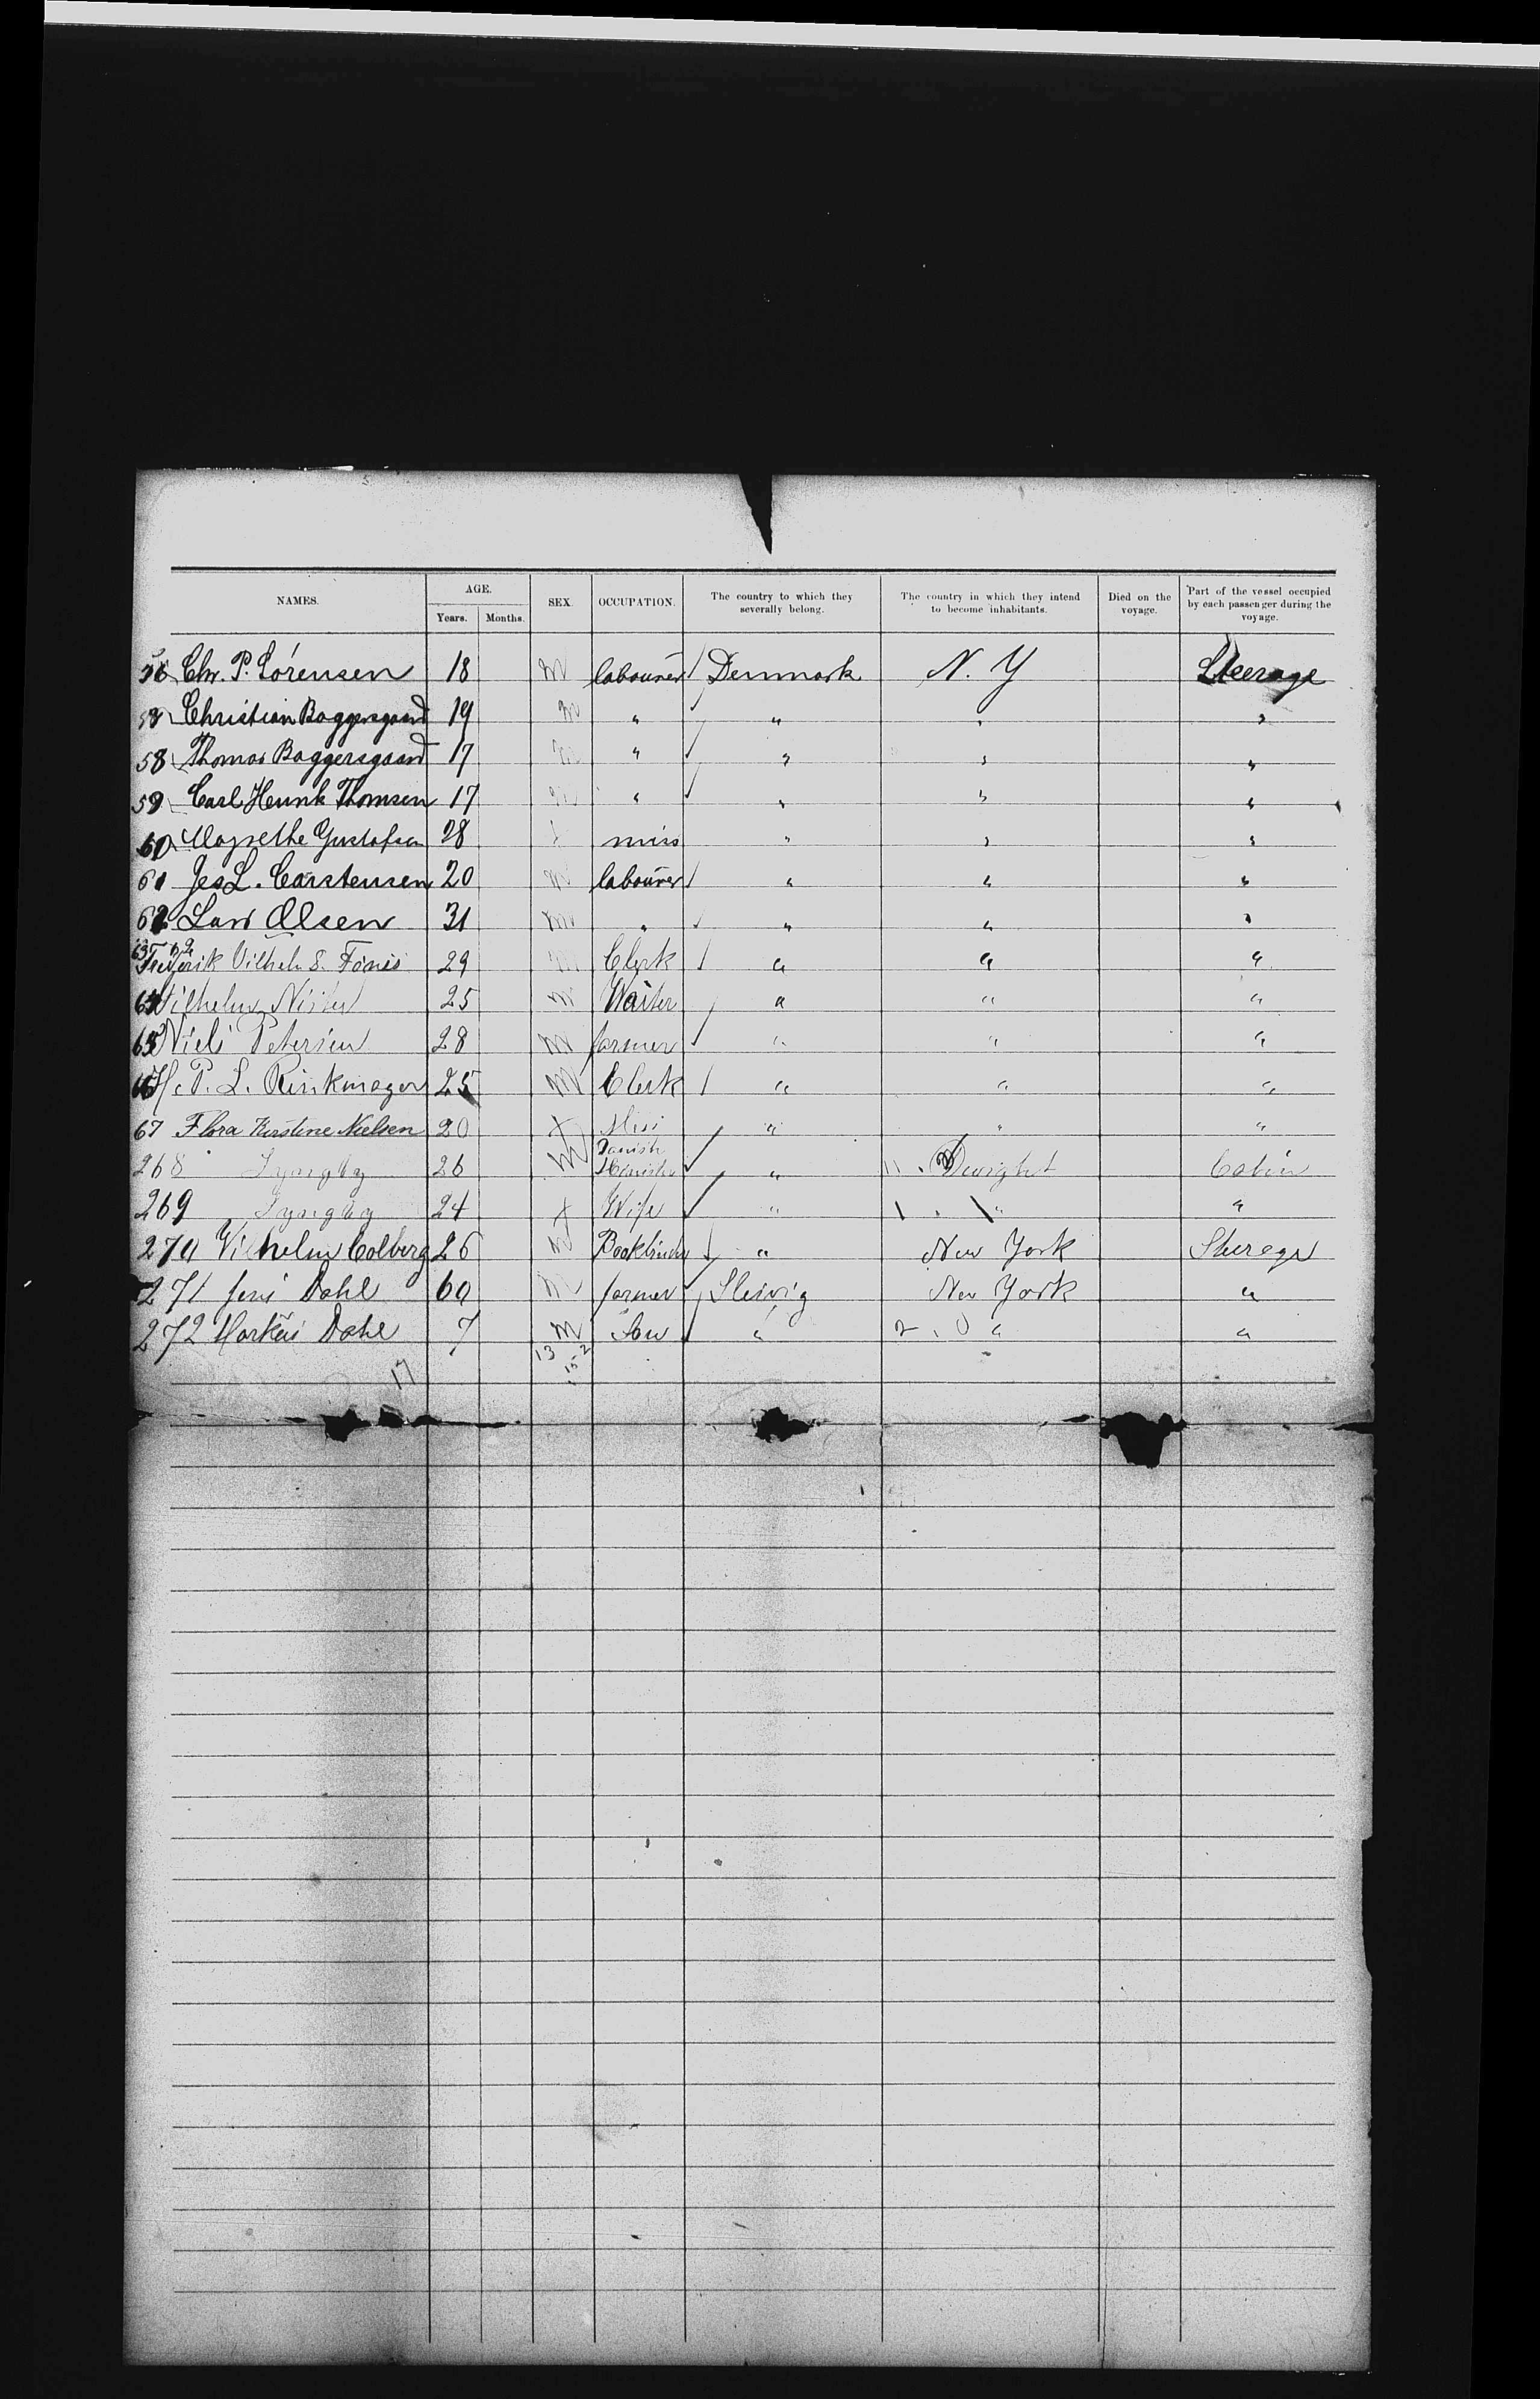 NAMES. AGE. SEX. OCCUPATION. The country to which they severally belong. The country in which they intend to become inhabitants. Died on the voyage. Part of the vessel occupied by each passenger during the voyage.
Years. Months.
56 Chr. P. Sörensen 18 m labourer Denmark N. Y Steerage
58 Christian Baggersgaard 19 m " " " "
58 Thomas Baggersgaard 17 m " " " "
59 Carl Henrik Thomsen 17 m " " " "
60 Gustafsen 28 f miss " " "
61 Jes L. Carstensen 20 m labourer " " "
62 Lars Olsen 31 m " " " "
63 Frederik Vilhelm S. 29 m Clerk " " "
64 Vilhelm 25 m Waiter " " "
65 Niels Petersen 28 m farmer " " "
66 H. P. L. Rinkmager 25 m Clerk " " "
67 Flora Kirstine Nielsen 20 f Miss " " "
268 Lyngby 26 m Danish " Dwight Cabin
269 Lyngby 24 f Wife " " "
270 Vilhelm Colberg 26 m Bookbinder " New York Steerage
271 Jens Dahl 60 m farmer Slesvig New York "
272 Markus Dahl 7 m Son " " "
17 13 15-2